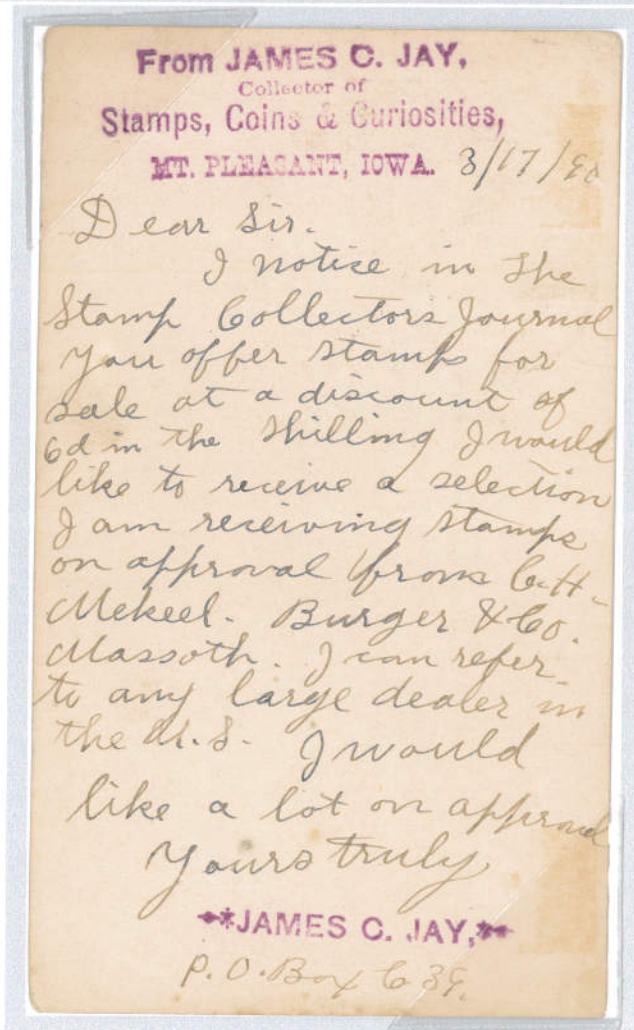 From JAMES C. JAY,
Collector of
Stamps, Coins & Curiosities,
MT. PLEASANT, IOWA. 3/17/90
Dear Sir.
I notice in the
Stamp Collectors Journal
you offer stamps for
sale at a discount of
6d in the shilling I would
like to receive a selection
I am receiving stamps
on approval from C. H.
Mekeel. Burger & Co.
Massoth. I can refer
to any large dealer in
the U. S. I would
like a lot on approval
Yours truly
JAMES C. JAY,
P. O. Box 639.